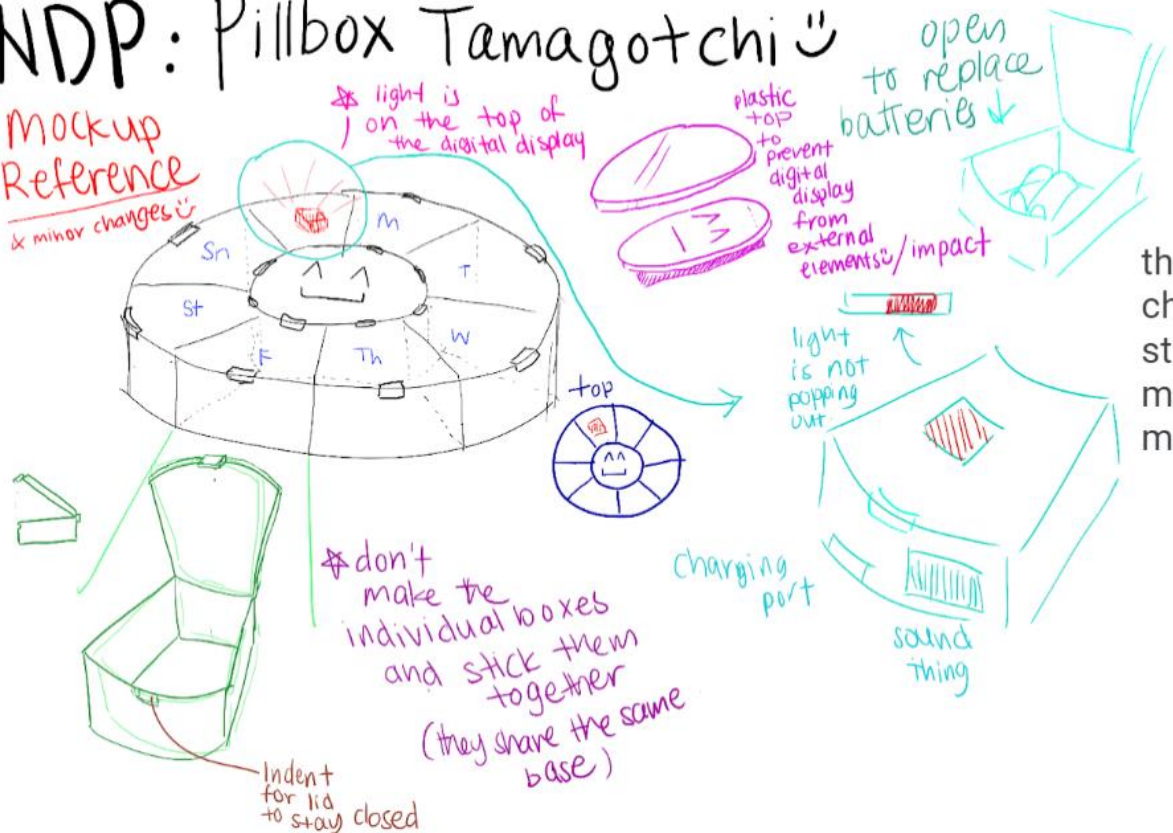 NDP: Pillbox Tamagotchi
Mockup
Reference
& minor changes
☆ light is
on the top of
the digital display
plastic
top
to
prevent
digital
display
from
external
elements / impact
open
to replace
batteries
Sn
M
T
W
Th
F
St
th
ch
st
m
m
light
is not
popping
out
top
☆ don't
make the
individual boxes
and stick them
together
(they share the same
base)
charging
port
sound
thing
Indent
for lid
to stay closed